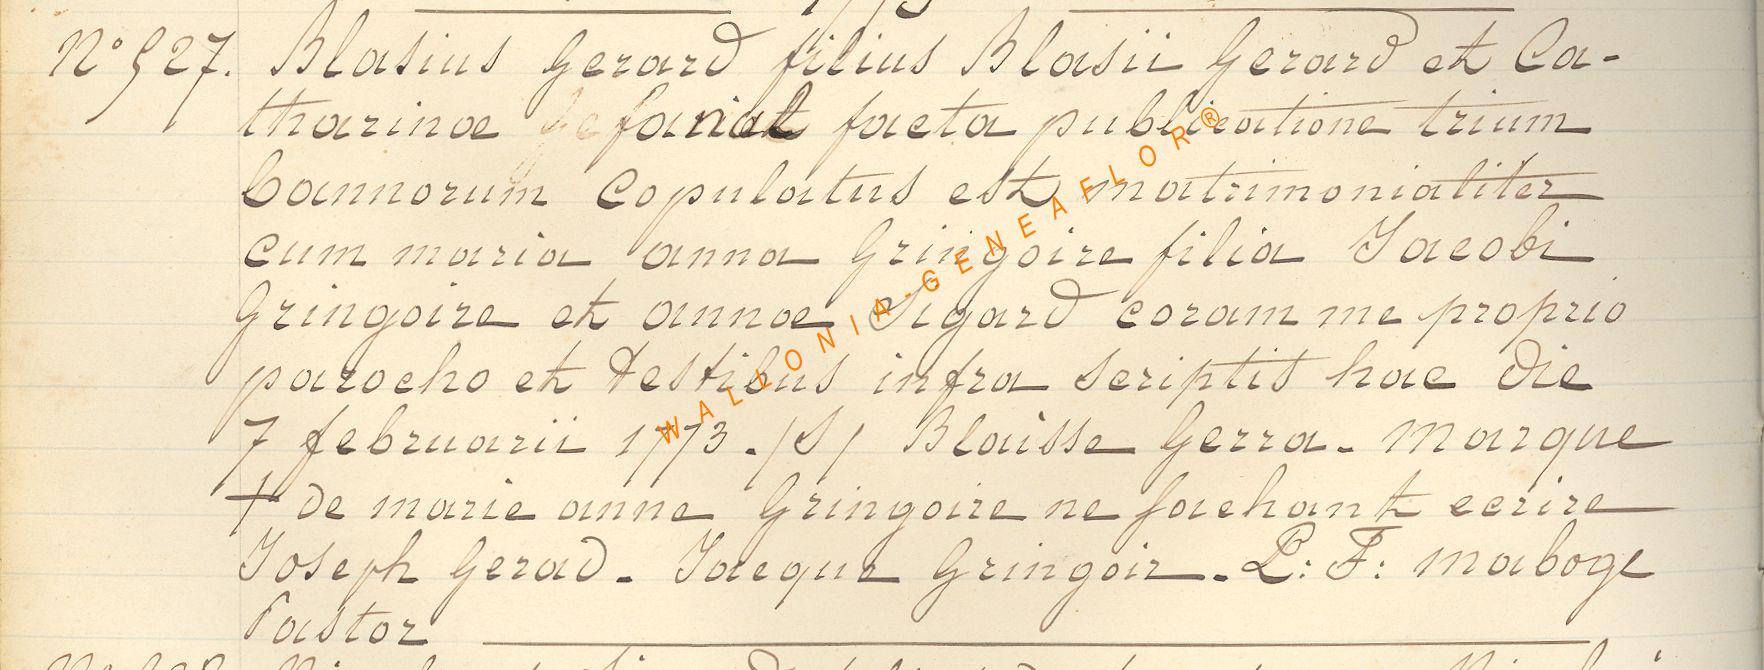 N° 527. Blasius Gerard filius Blasii Gerard et Ca-
tharinae fanial facta publicatione trium
bannorum copulatus est matrimonialiter
cum maria anna Gringoire filia Jacobi
Gringoire et annae Sigard coram me proprio
parocho et testibus infra scriptis hac die
7 februarii 1773. /S/ Blaisse Gerra. Marque
+ de marie anne Gringoire ne sachant ecrire
Joseph Gerad. Jacque Gringoir. L: F: maboge
Pastor
WALLONIA-GENEAFLOR®